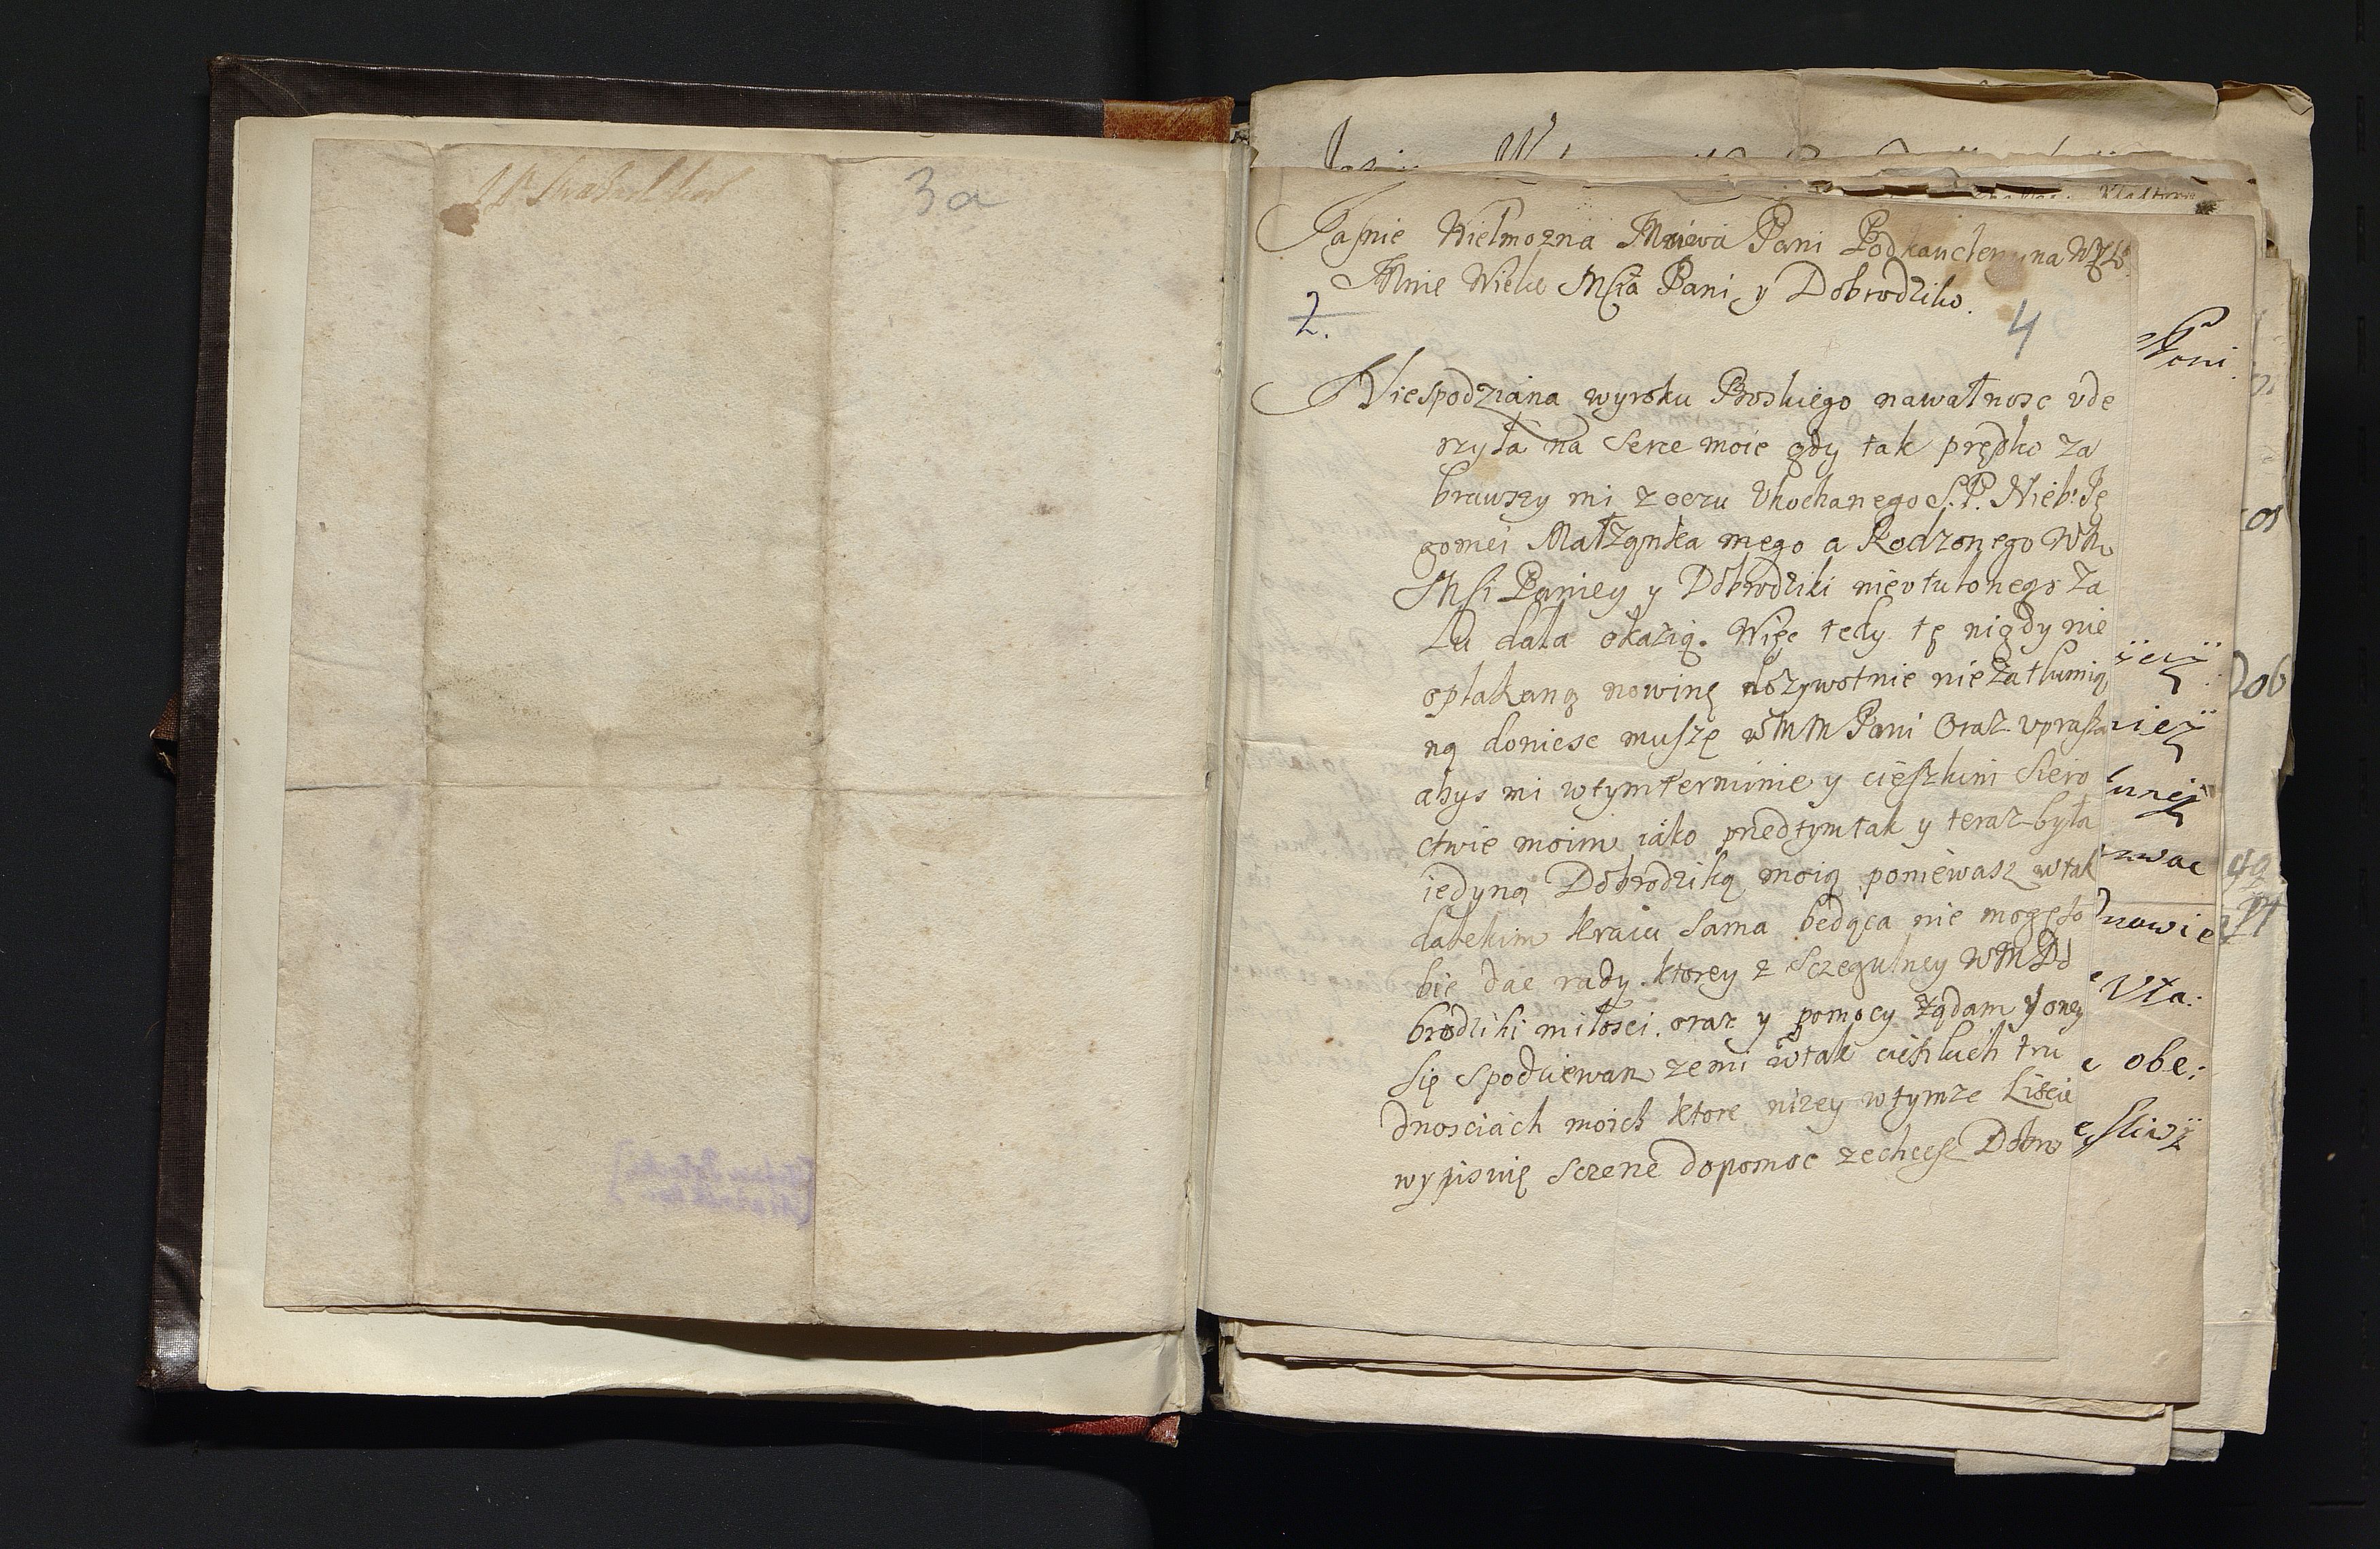 3a
Jasnie Wielmozna Mosciwa Pani Podkanclerzyna WXLo
Mnie Wielce Mscia Pani y Dobrodziko.
2.
4
Niespodziana wyroku Boskiego nawałnosc vde
rzyła na serce moie gdy tak prędko za
brawszy mi z oczu Vkochanego S.P. Nieb: Je
gomci Małzonka mego a Rodzonego Wh
Msi Paniey y Dobrodziki nievtulonego za
lu dała okazią. Więc tedy tę nigdy nie
opłakaną nowinę dozywotnie niezatłumią
ną doniesc muszę WMM Pani Oraz vprasza
abys mi wtym terminie y cięszkim siero
ctwie moim iako przedtym tak y teraz była
iedyną Dobrodziką moią poniewasz wtak
dalekim kraiu sama będąca nie mogę so
bie dac rady. ktorey z sczegulney WM Do
brodziki miłosci. oraz y pomocy ządam y oney
się spodziewam ze mi wtak cięszkich tru
dnosciach moich ktore nizey wtymze Liscie
wypisuię sczerze dopomoc zechcesz Dobro
Pani
nowie
Vła:
obe:
Dob